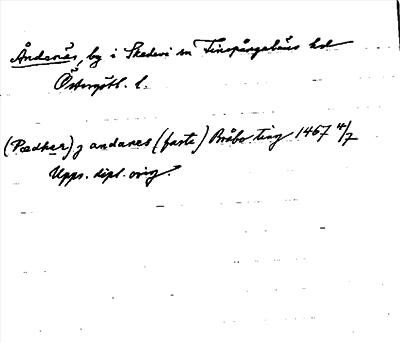 Åndenäs, by i Skedevi sn Finspångaläns hd
Östergötl. l.
(Pædher) j andanes (faste) Bråbo ting 1467 4/7
Upps. dipl. orig.